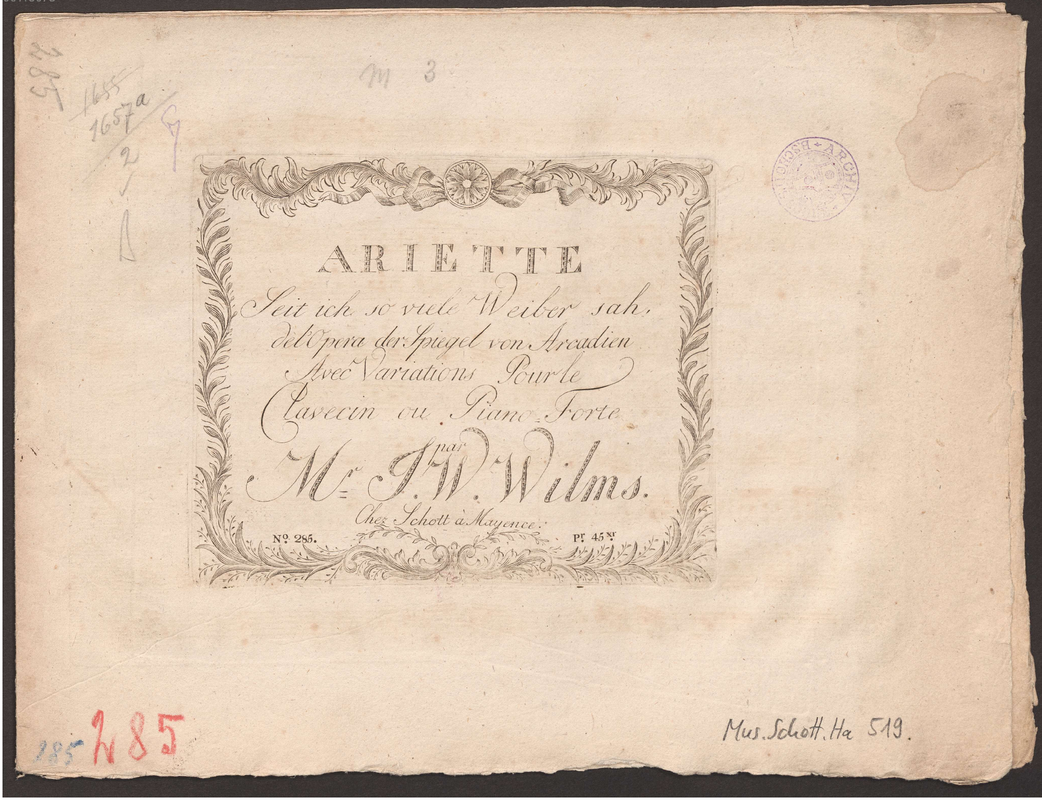 285
1655
1657a
2
M 3
ARCHIV
ARIETTE
Seit ich so viele Weiber sah,
del'Opera der Spiegel von Arcadien
Avec Variations Pour le
Clavecin ou Piano-Forte
par
Mr. J. W. Wilms.
Chez Schott à Mayence.
No. 285. Pr. 45 Xr
285 285
Mus. Schott. Ha 519.